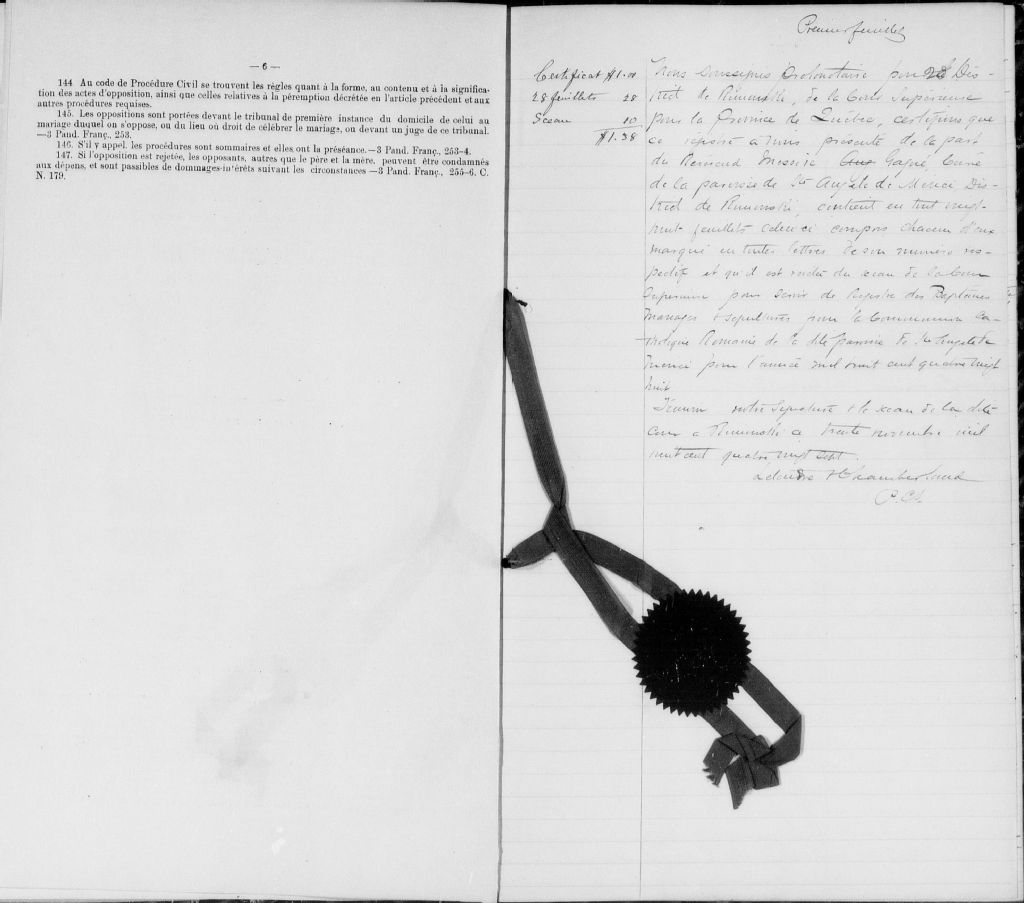 — 6 —
144 Au code de Procédure Civil se trouvent les règles quant à la forme, au contenu et à la significa-
tion des actes d'opposition, ainsi que celles relatives à la péremption décrétée en l'article précédent et aux
autres procédures requises.
145. Les oppositions sont portées devant le tribunal de première instance du domicile de celui au
mariage duquel on s'oppose, ou du lieu où droit de célébrer le mariage, ou devant un juge de ce tribunal.
—3 Pand. Franç., 253.
146. S'il y appel, les procédures sont sommaires et elles ont la préséance.—3 Pand. Franç., 253-4.
147. Si l'opposition est rejetée, les opposants, autres que le père et la mère, peuvent être condamnés
aux dépens, et sont passibles de dommages-intérêts suivant les circonstances —3 Pand. Franç., 255-6. C.
N. 179.
Premier feuillet
Certificat $1.00
28 feuillets 28
Sceau 10
$1.38
Nous soussignés Protonotaire pour le Dis-
trict de Rimouski, de la Cour Supérieure
pour la Province de Québec, certifions que
ce registre à nous présenté de la part
du Révérend Messire Gagné, Curé
de la paroisse de Ste Angèle de Merici, Dis-
trict de Rimouski, contient en tout vingt-
huit feuillets celui ci compris chacun d'eux
marqué en toutes lettres de son numéro res-
pectif et qu'il est scellé du sceau de la Cour
Supérieure pour servir de Registre des Baptêmes
Mariages & sépultures pour la Communion Ca-
tholique Romaine de la dite paroisse de Ste Angèle de
Merici pour l'année mil huit cent quatre vingt
huit
Témoin notre signature & le sceau de la dite
Cour à Rimouski ce trente novembre mil
huit cent quatre vingt sept.
Chamberland
P.C.S.